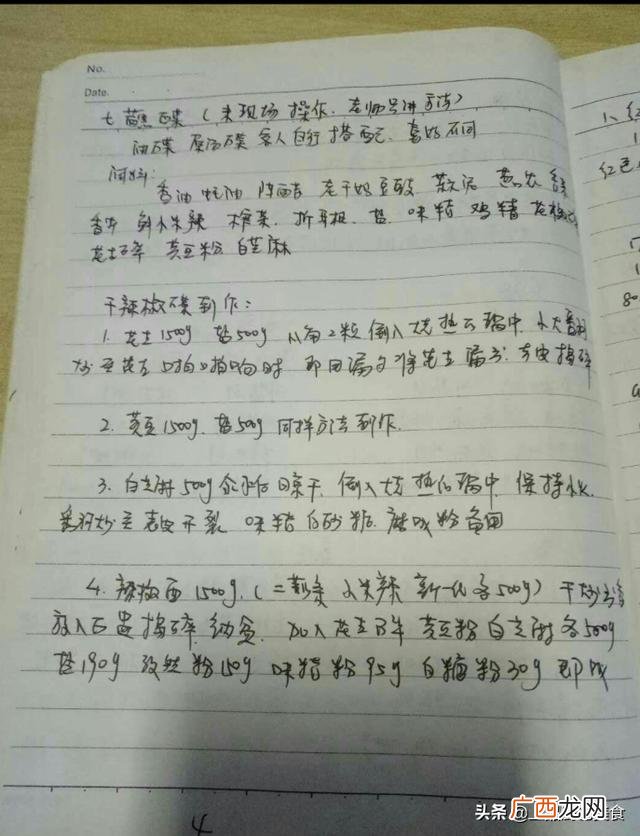 No.
Date.
七 蘸碟 (未现场操作.老师只讲方法)
油碟 原汤碟 客人自行搭配. 喜好不同
调料:
香油 蚝油 陈醋 老干妈豆豉 蒜泥 葱花 香菜
香芹 鲜小米辣 榨菜. 折耳根. 盐. 味精 鸡精 花椒
花生碎 黄豆粉 白芝麻
干辣椒碟制作:
1. 花生1500g 盐500g 八角2粒 倒入烧热石锅中. 小火翻
炒至花生口拍口拍响时 即用漏勺将花生漏出. 去皮捣碎
2. 黄豆1500g. 盐500g 同样方法制作.
3. 白芝麻500g 晾干. 倒入烧热石锅中. 保持小火.
翻炒至表皮不裂. 味精 白砂糖. 磨成粉备用
4. 辣椒面1500g. (二荆条 小米辣 新一代各500g) 干炒出香
放入石臼捣碎 加入花生碎 黄豆粉 白芝麻各500g
盐190g 孜然粉150g 味精粉95g 白糖粉30g 即成
4
1、红
红色
80
头条 @ 食
广西龙网